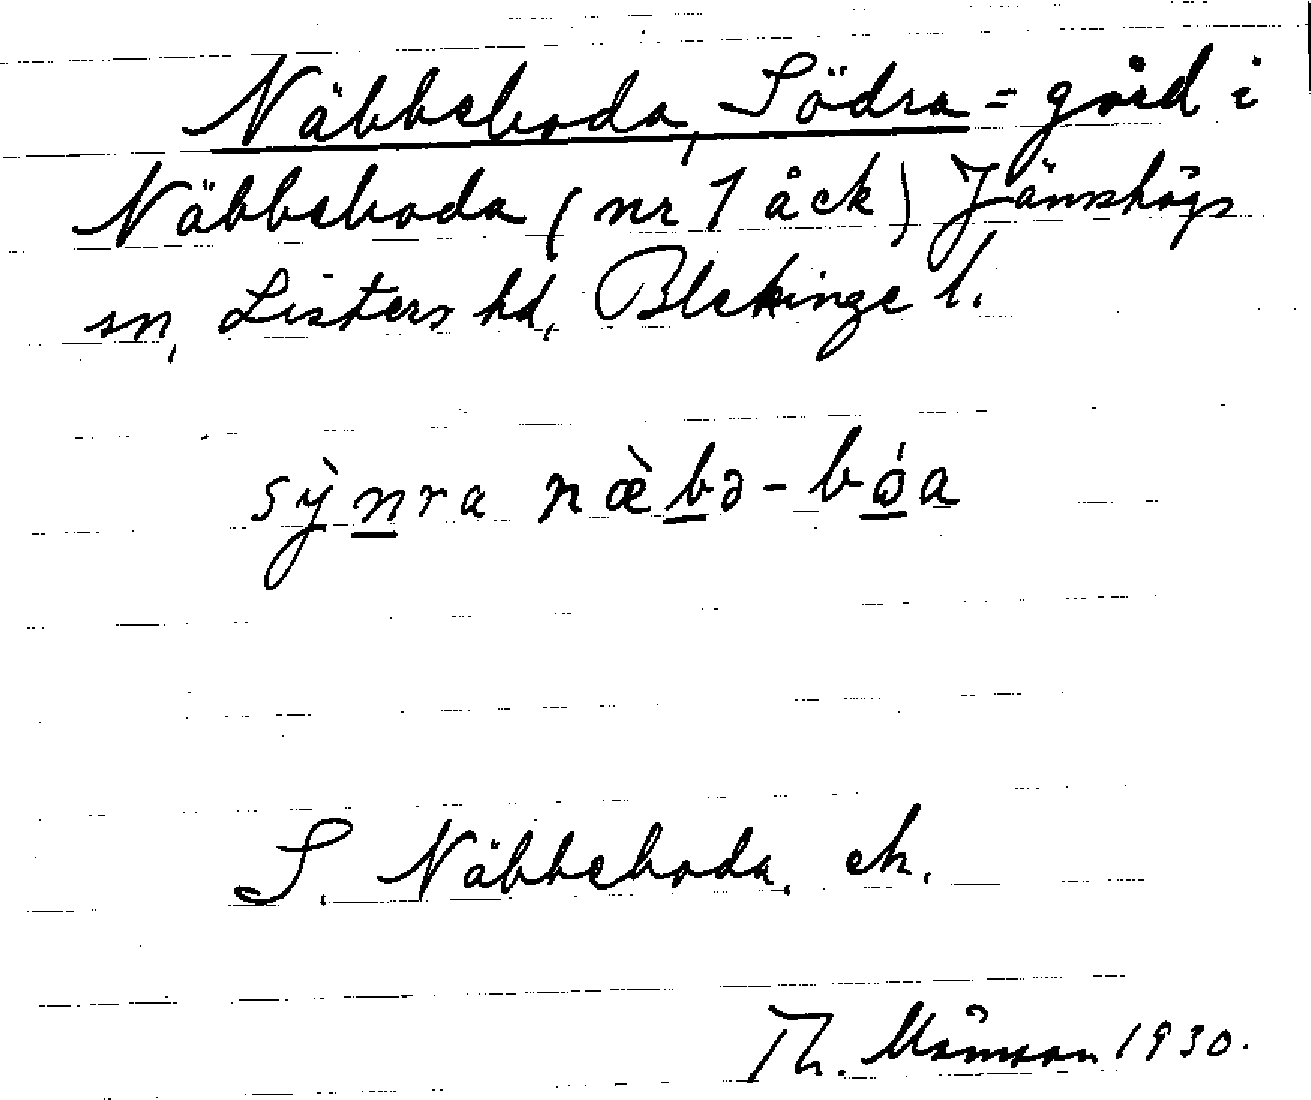 Näbbeboda, Södra = gård i
Näbbeboda (nr 1 åck) Jämshögs
sn, Listers hd, Blekinge l.
sỳnra næ̀bə-bǿa
S. Näbbeboda. ek.
Th. Månsson 1930.